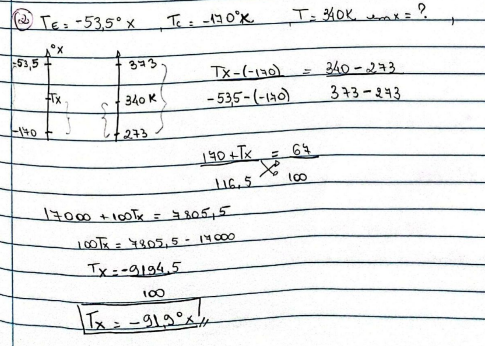 2) TE = -53,5°x , Tc = -170°x , T = 340K em x = ? ,
°x
-53,5 373
Tx 340K
-170 273
Tx-(-170) = 340-273
-53,5-(-170) 373-273
170+Tx = 67
116,5 100
17000 + 100Tx = 7805,5
100Tx = 7805,5 - 17000
Tx = -9194,5
100
Tx = -91,9°x //